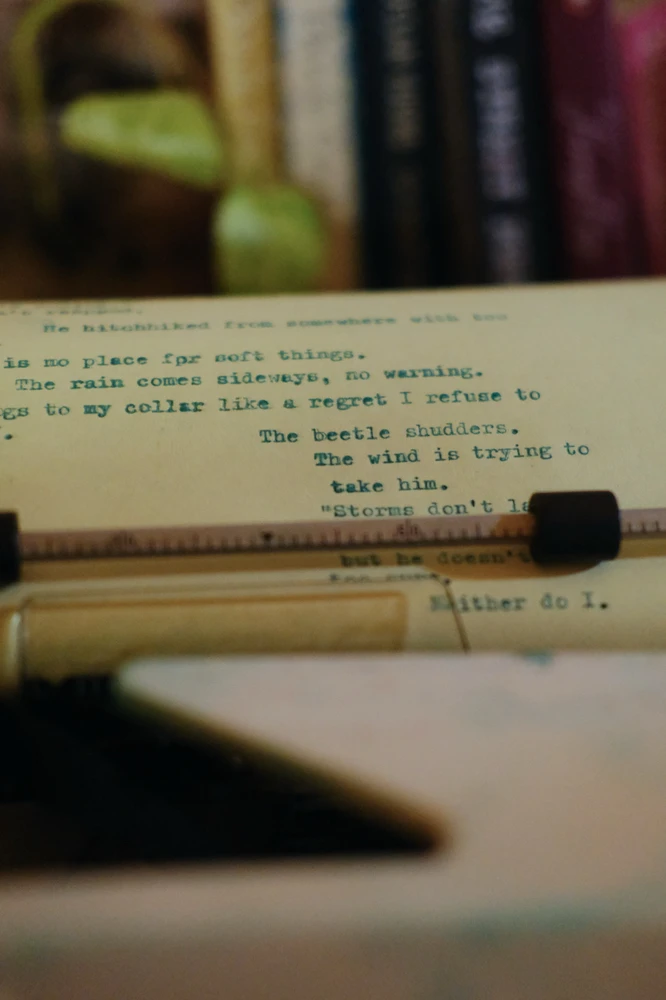 He hitchhiked from somewhere with too
is no place for soft things.
The rain comes sideways, no warning.
gs to my collar like a regret I refuse to
.
The beetle shudders.
The wind is trying to
take him.
"Storms don't la
but he doesn't
Neither do I.